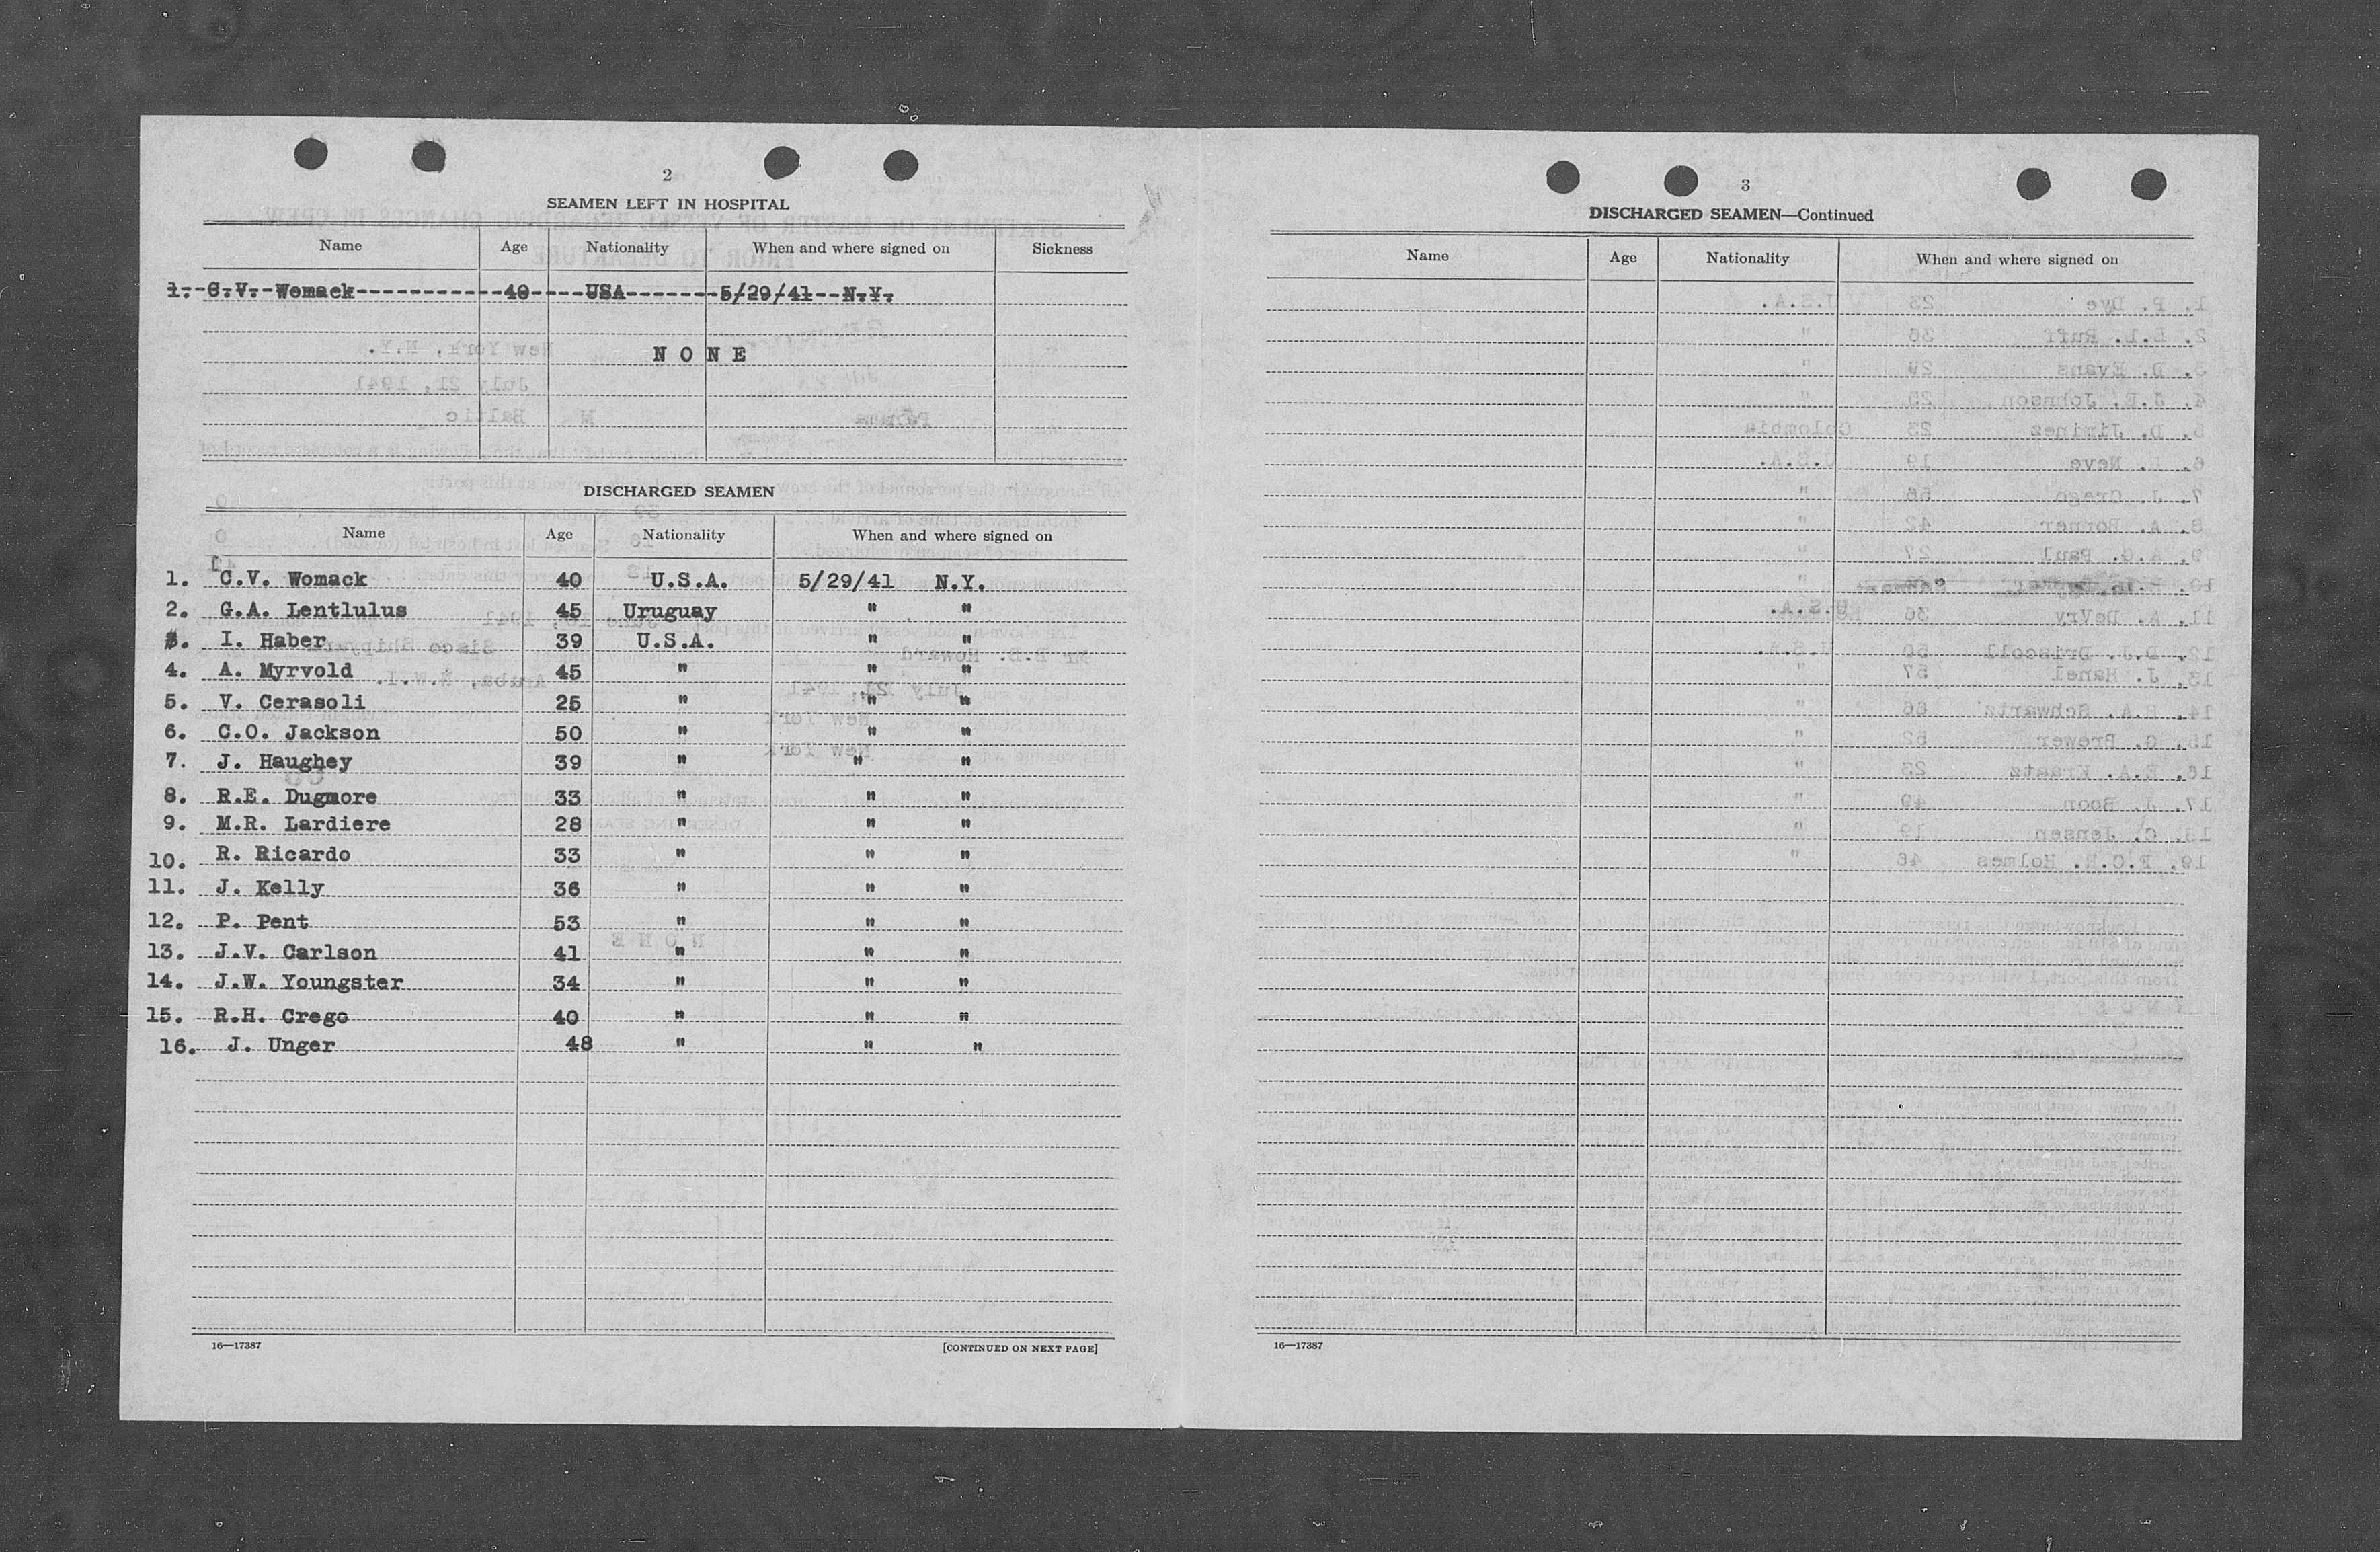 2
SEAMEN LEFT IN HOSPITAL
Name Age Nationality When and where signed on Sickness
1. C.V. Womack 40 USA 5/29/41 N.Y.
NONE
DISCHARGED SEAMEN
Name Age Nationality When and where signed on
1. C.V. Womack 40 U.S.A. 5/29/41 N.Y.
2. G.A. Lentlulus 45 Uruguay " "
3. I. Haber 39 U.S.A. " "
4. A. Myrvold 45 " " "
5. V. Cerasoli 25 " " "
6. C.O. Jackson 50 " " "
7. J. Haughey 39 " " "
8. R.E. Dugmore 33 " " "
9. M.R. Lardiere 28 " " "
10. R. Ricardo 33 " " "
11. J. Kelly 36 " " "
12. P. Pent 53 " " "
13. J.V. Carlson 41 " " "
14. J.W. Youngster 34 " " "
15. R.H. Crego 40 " " "
16. J. Unger 48 " " "
16—17387 [CONTINUED ON NEXT PAGE]
3
DISCHARGED SEAMEN—Continued
Name Age Nationality When and where signed on
16—17387